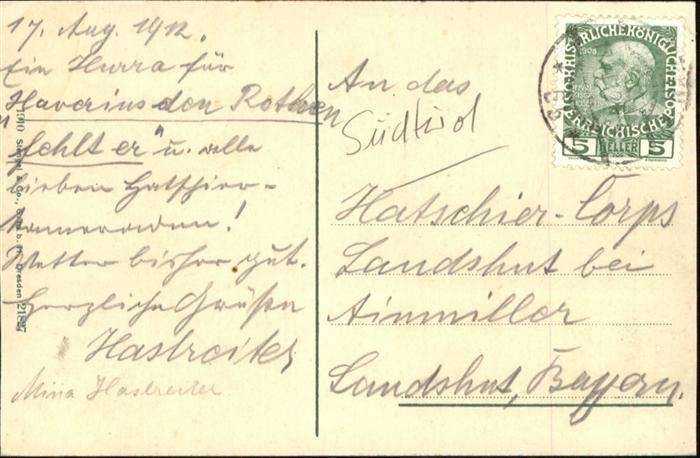 17. Aug. 1912.
Ein Hurra für
"Haverius den Rothen
fehlt er" u. alle
lieben Hatschier-
kameraden!
Wetter bisher gut.
Herzliche Grüße
Hastreiter
Mina Hastreiter
1910 Stengel & Co., Dresden
An das
Südtirol
Hatschier-Corps
Landshut bei
Ainmiller
Landshut, Bayern.
KAISERLICHEKÖNIGLICHE
ÖSTERREICHISCHE POST
5 HELLER 5